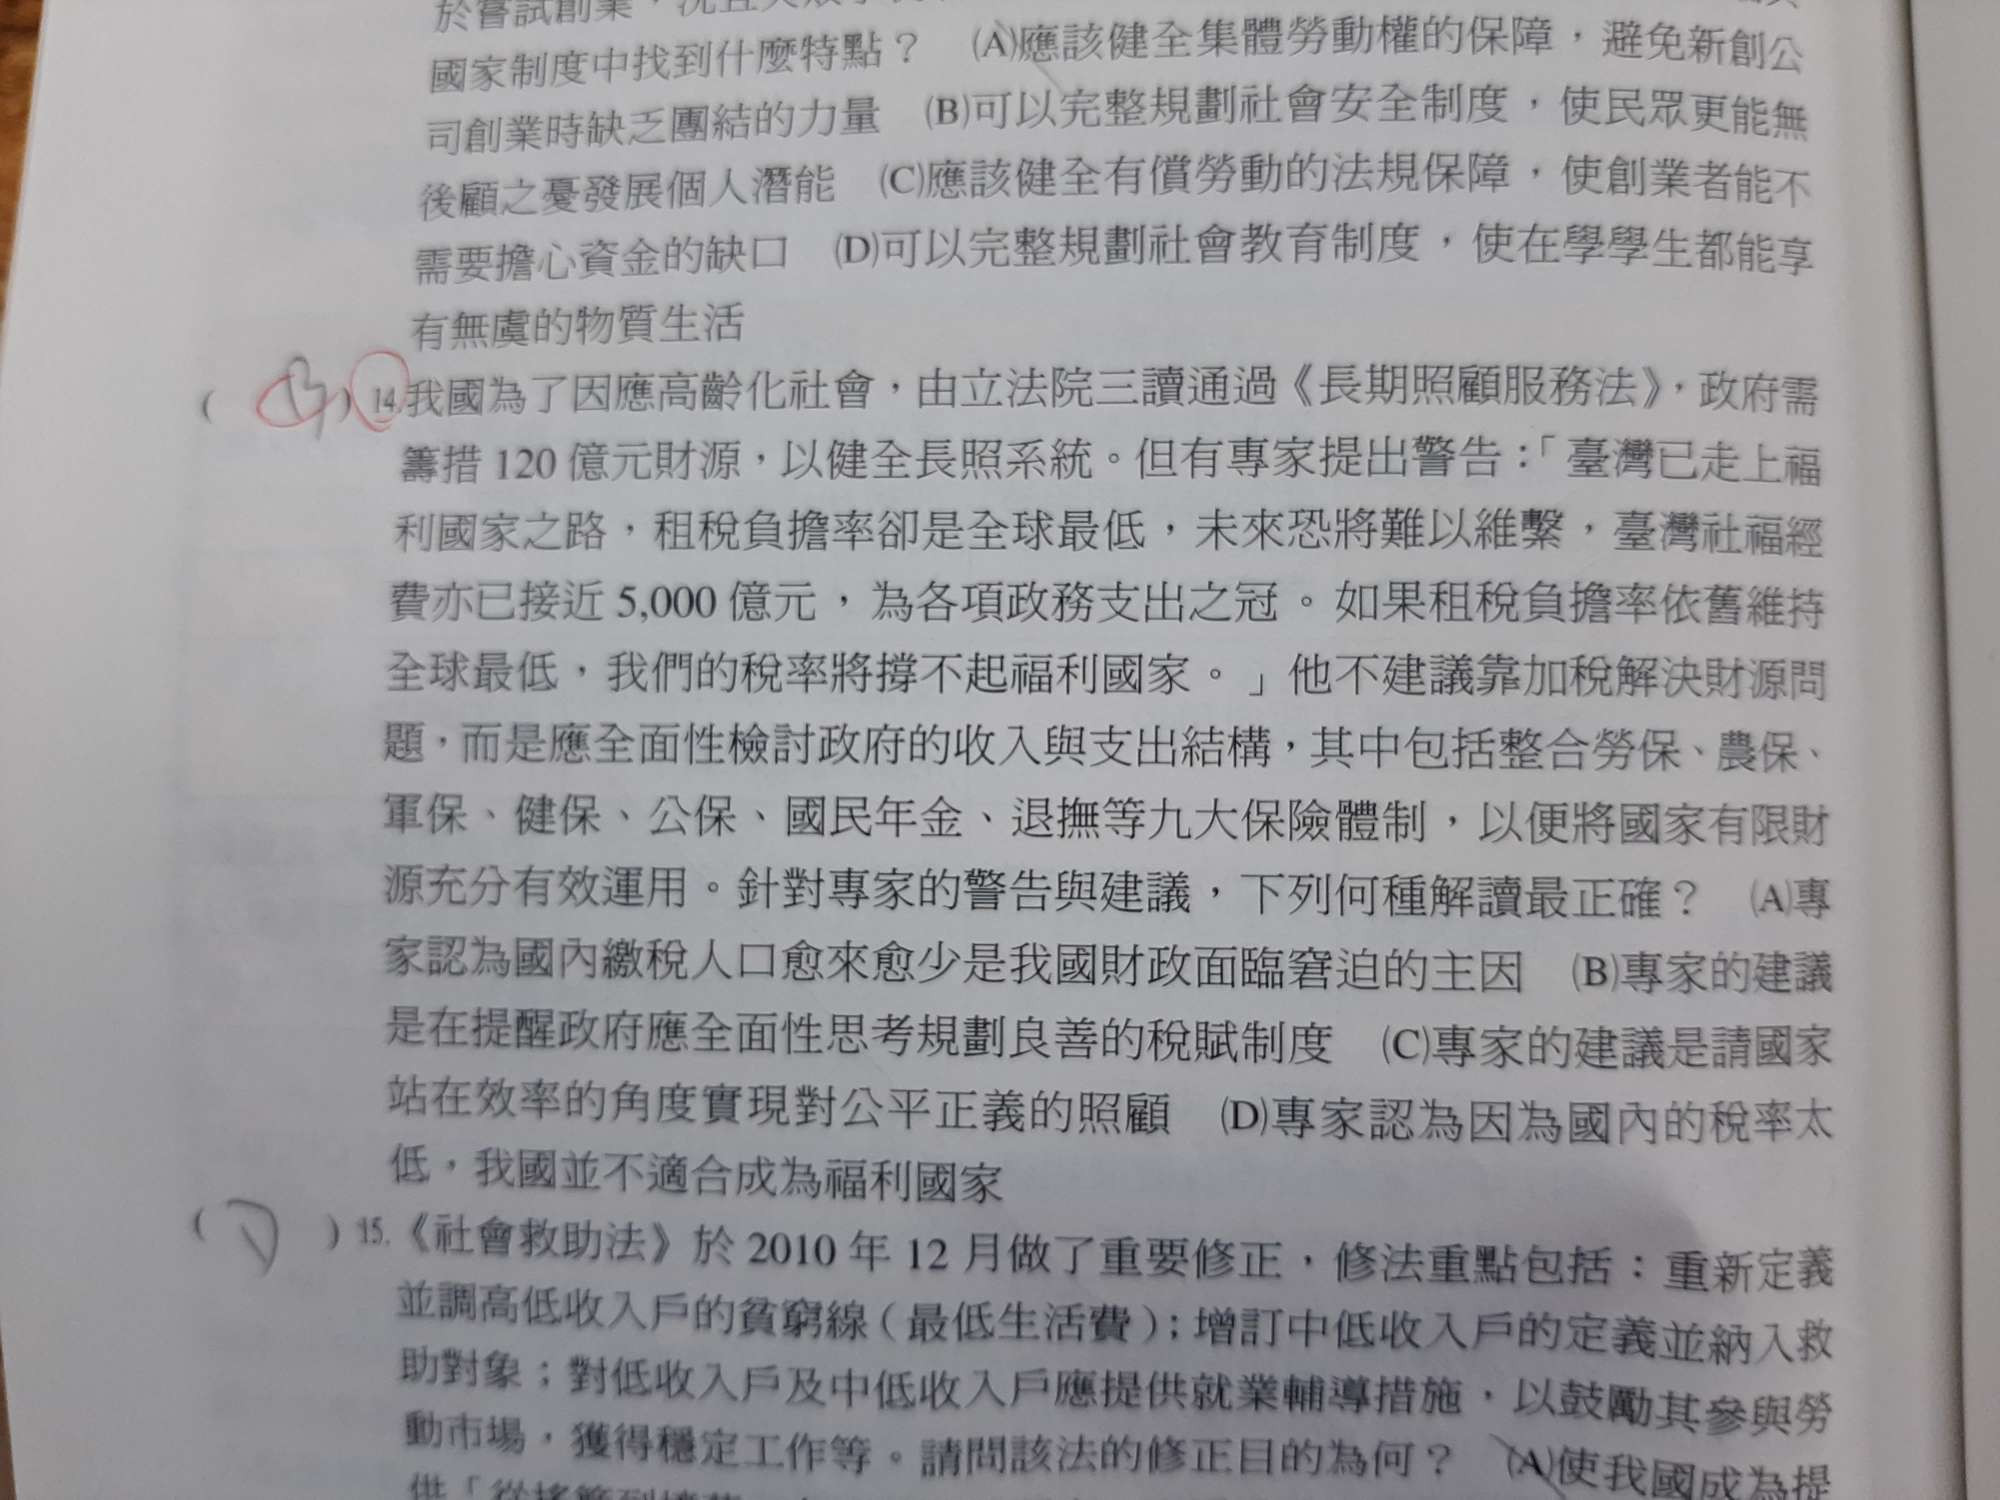 於嘗試創業，
國家制度中找到什麼特點？　(A)應該健全集體勞動權的保障，避免新創公
司創業時缺乏團結的力量　(B)可以完整規劃社會安全制度，使民眾更能無
後顧之憂發展個人潛能　(C)應該健全有償勞動的法規保障，使創業者能不
需要擔心資金的缺口　(D)可以完整規劃社會教育制度，使在學學生都能享
有無虞的物質生活
(　)14.我國為了因應高齡化社會，由立法院三讀通過《長期照顧服務法》，政府需
籌措 120 億元財源，以健全長照系統。但有專家提出警告：「臺灣已走上福
利國家之路，租稅負擔率卻是全球最低，未來恐將難以維繫，臺灣社福經
費亦已接近 5,000 億元，為各項政務支出之冠。如果租稅負擔率依舊維持
全球最低，我們的稅率將撐不起福利國家。」他不建議靠加稅解決財源問
題，而是應全面性檢討政府的收入與支出結構，其中包括整合勞保、農保、
軍保、健保、公保、國民年金、退撫等九大保險體制，以便將國家有限財
源充分有效運用。針對專家的警告與建議，下列何種解讀最正確？　(A)專
家認為國內繳稅人口愈來愈少是我國財政面臨窘迫的主因　(B)專家的建議
是在提醒政府應全面性思考規劃良善的稅賦制度　(C)專家的建議是請國家
站在效率的角度實現對公平正義的照顧　(D)專家認為因為國內的稅率太
低，我國並不適合成為福利國家
(　)15.《社會救助法》於 2010 年 12 月做了重要修正，修法重點包括：重新定義
並調高低收入戶的貧窮線（最低生活費）；增訂中低收入戶的定義並納入救
助對象；對低收入戶及中低收入戶應提供就業輔導措施，以鼓勵其參與勞
動市場，獲得穩定工作等。請問該法的修正目的為何？　(A)使我國成為提
供「從搖籃到墳墓